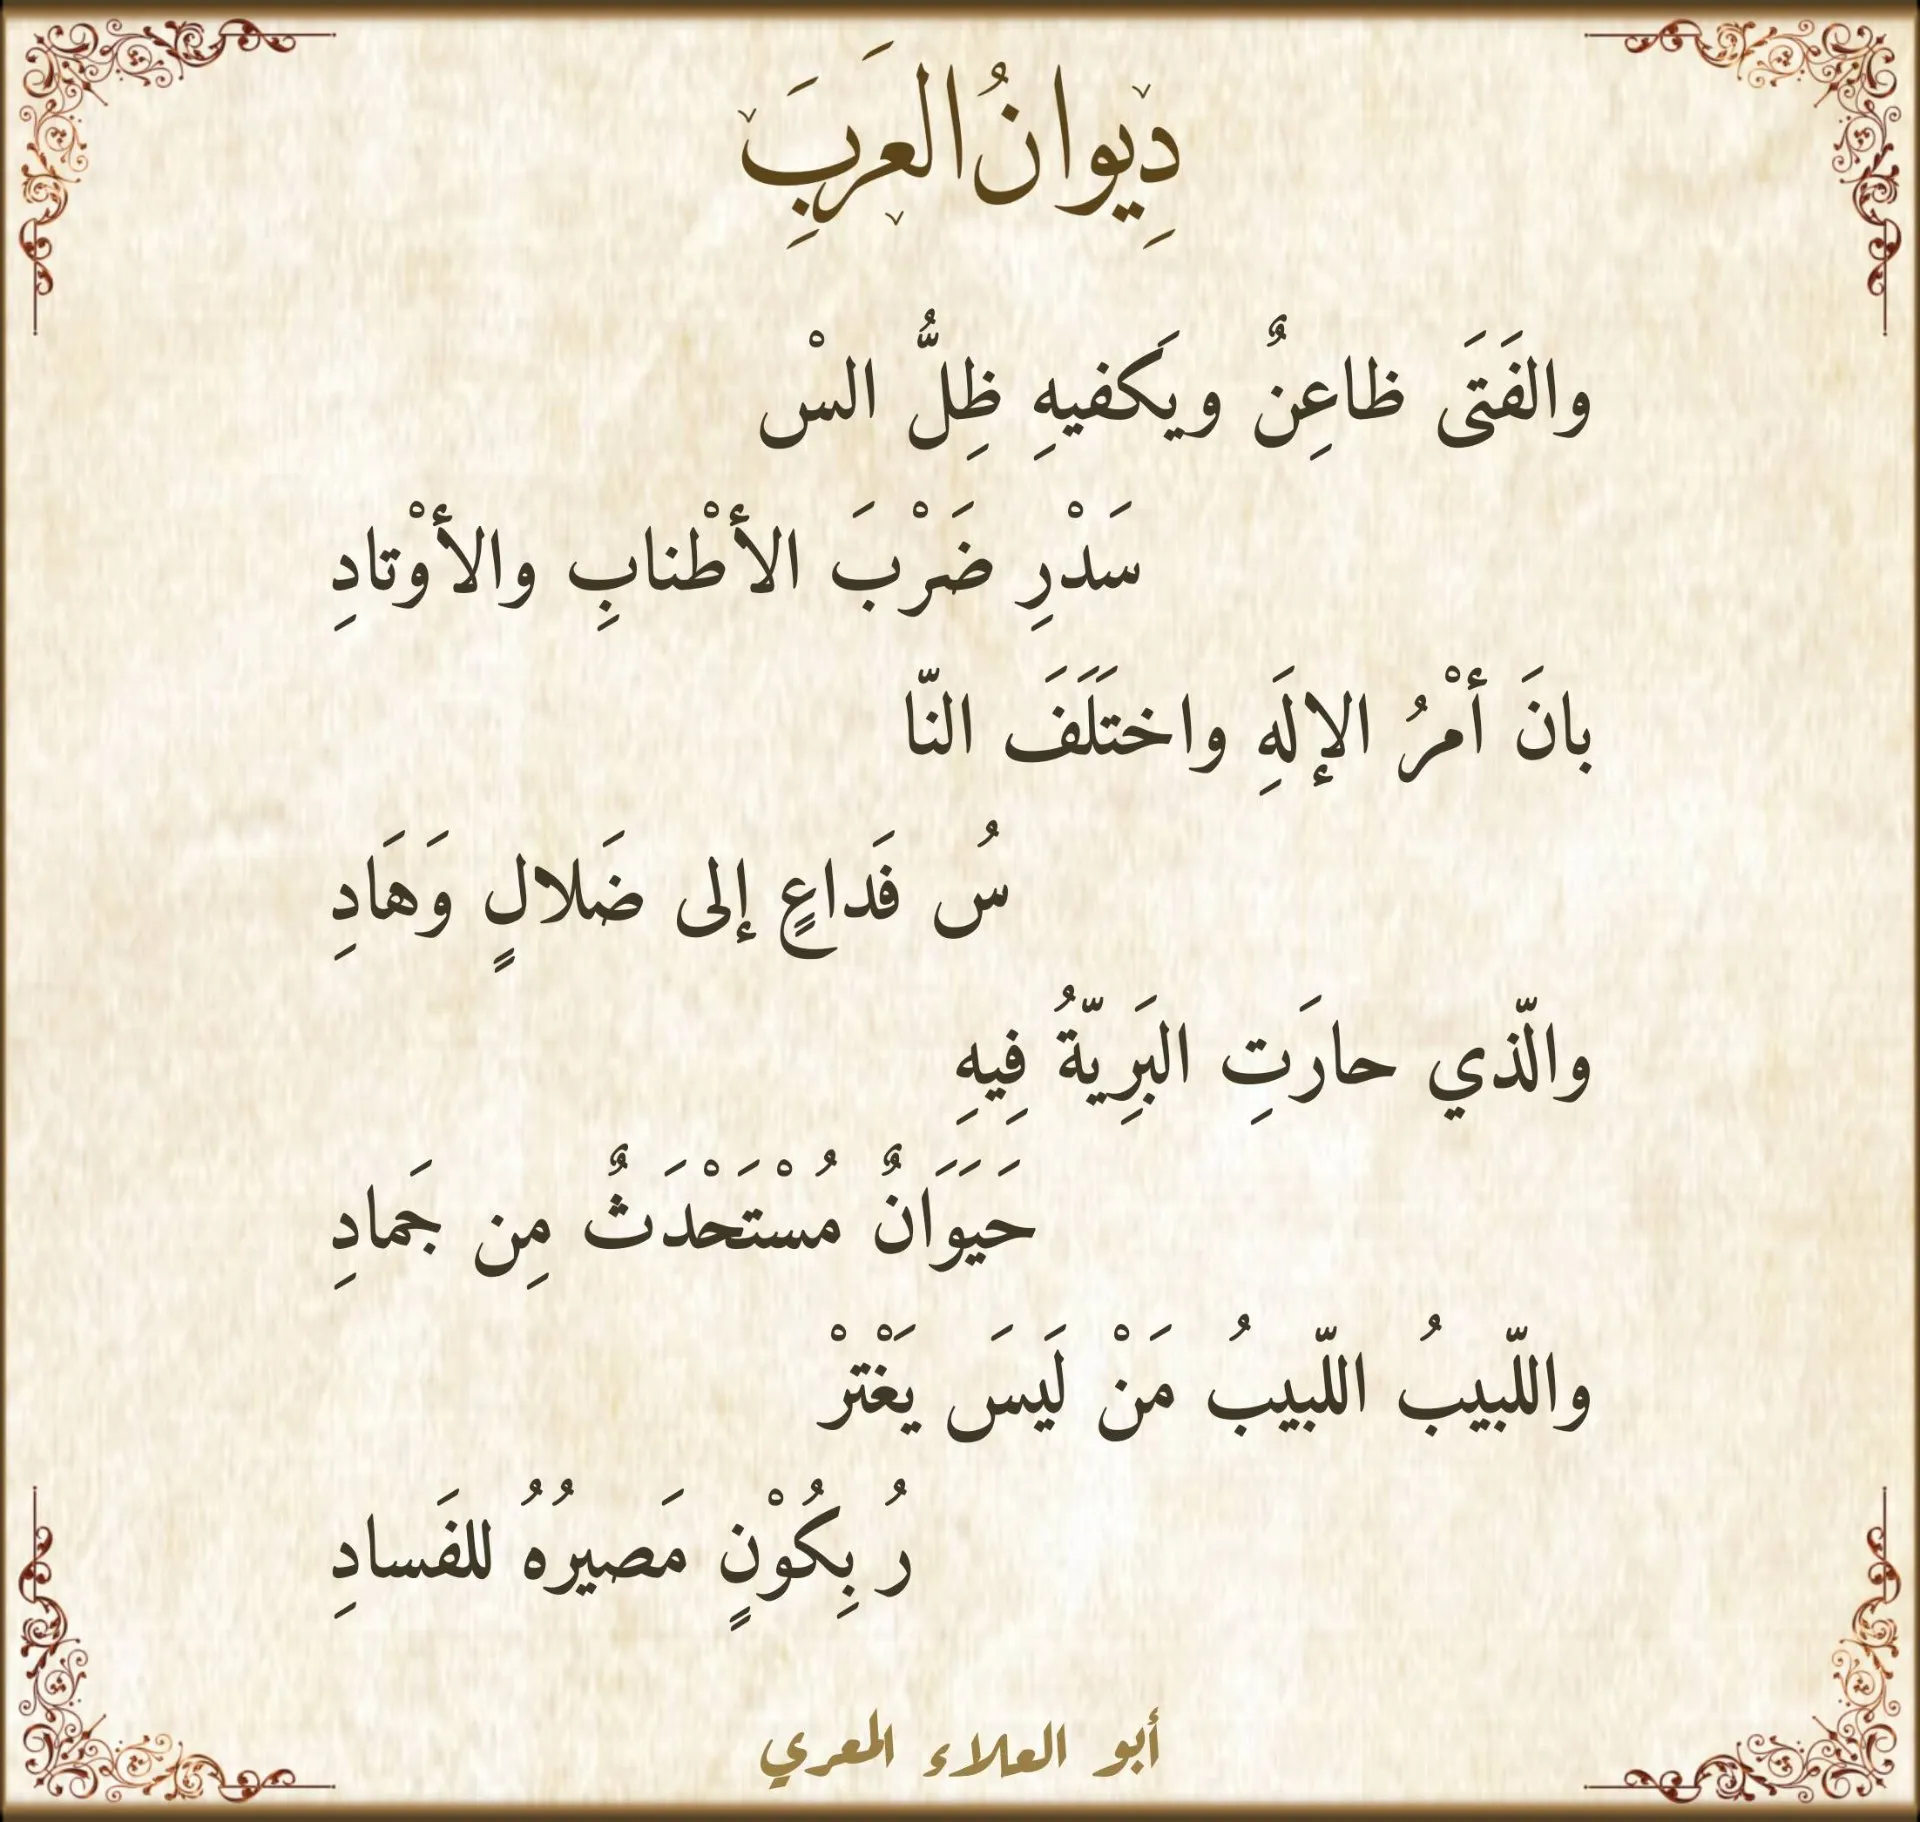 دِيوانُ العَربَِ
والفَتَى ظاعِنٌ ويَكفيهِ ظِلُّ السْ
سَدْرِ ضَرْبَ الأطْنابِ والأوْتادِ
بانَ أمْرُ الإلَهِ واختَلَفَ النّا
سُ فَداعٍ إلى ضَلالٍ وَهَادِ
والّذي حارَتِ البَرِيّةُ فِيهِ
حَيَوَانٌ مُسْتَحْدَثٌ مِن جَمادِ
واللّبيبُ اللّبيبُ مَنْ لَيسَ يَغْترْ
رُ بِكُوْنٍ مَصيرُهُ للفَسادِ
أبو العلاء المعري